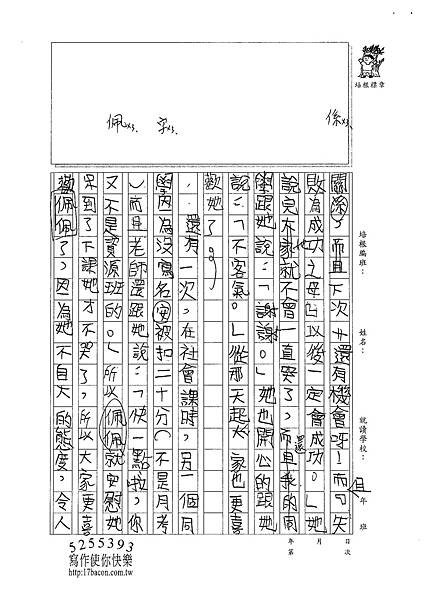 培根標章
佩x3. 字x3.
係x3.
培根編班：
姓名：
就讀學校：
年 班
關係了而且下次還有機會呀！而且失
敗為成功之母以後一定會成功。」她
說完大家就不會一直哭了，而且我的同
學跟她說：「謝謝。」她也開心的跟她
說：「不客氣。」從那天起大家也更喜
歡她了。
還有一次，在社會課時，另一個同
學因為沒寫名字被扣二十分(不是月考
)而且老師還跟她說：「快一點啦，你
又不是資源班的。」所以佩佩就安慰她
果到了下課她才不哭了，所以大家更喜
歡佩佩了，因為她不自大的態度，令人
第 年 月 日 次
5255393
寫作使你快樂
http://17bacon.com.tw/